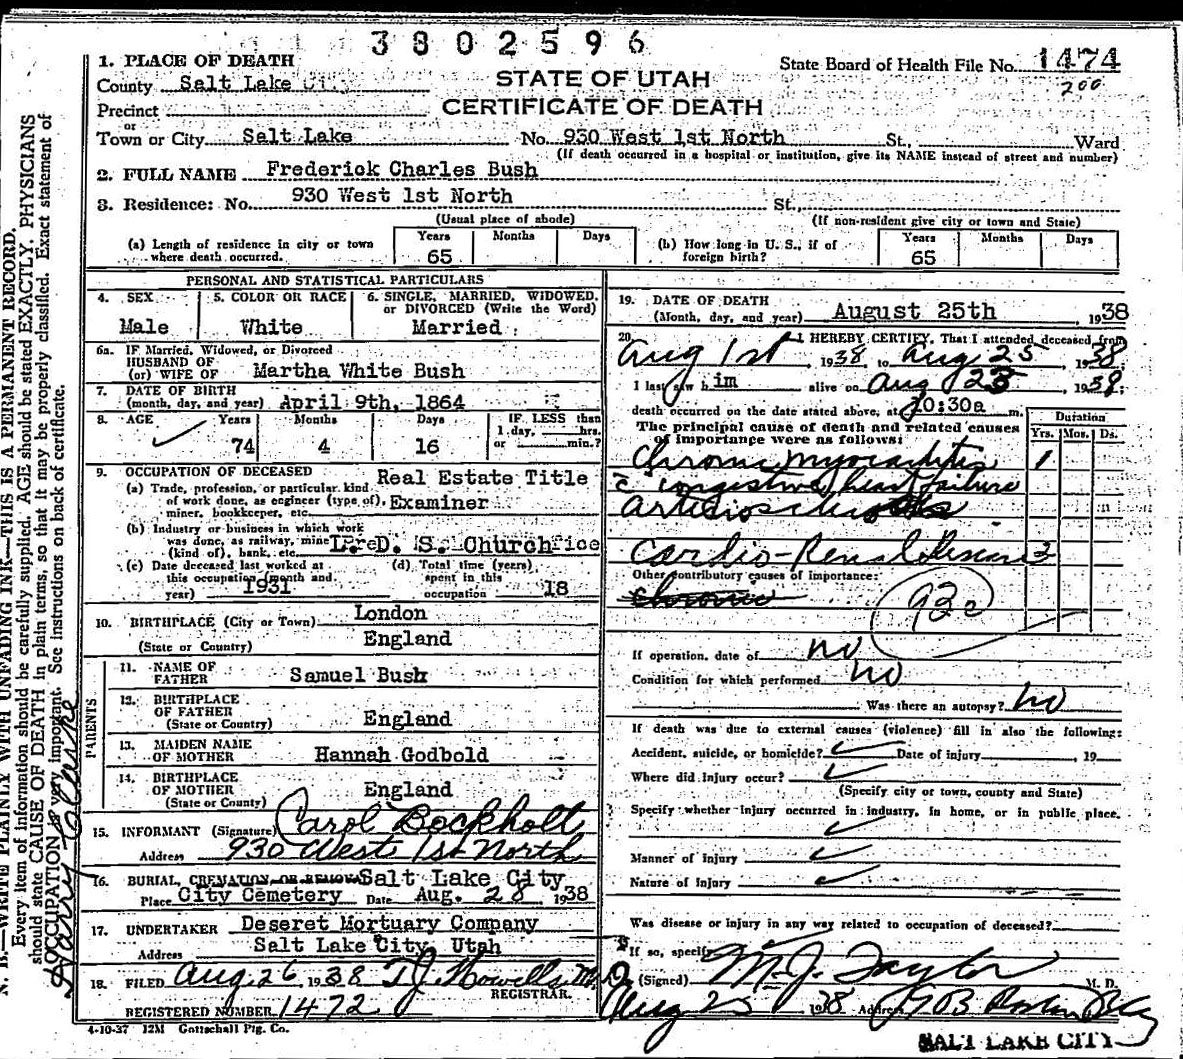 3802596
1. PLACE OF DEATH
County Salt Lake
STATE OF UTAH
State Board of Health File No. 1474
200
Precinct
CERTIFICATE OF DEATH
or
Town or City Salt Lake No. 930 West 1st North St., Ward
(If death occurred in a hospital or institution, give its NAME instead of street and number)
2. FULL NAME Frederick Charles Bush
3. Residence: No. 930 West 1st North St.,
(Usual place of abode) (If non-resident give city or town and State)
(a) Length of residence in city or town where death occurred. Years 65 Months Days
(b) How long in U. S., if of foreign birth? Years 65 Months Days
PERSONAL AND STATISTICAL PARTICULARS
4. SEX Male
5. COLOR OR RACE White
6. SINGLE, MARRIED, WIDOWED, or DIVORCED (Write the Word) Married
6a. IF Married, Widowed, or Divorced
HUSBAND OF
(or) WIFE OF Martha White Bush
7. DATE OF BIRTH
(month, day, and year) April 9th, 1864
8. AGE Years 74 Months 4 Days 16 IF LESS than 1 day, hrs. or min.?
9. OCCUPATION OF DECEASED Real Estate Title
(a) Trade, profession, or particular kind
of work done, as engineer (type of), Examiner
miner, bookkeeper, etc.
(b) Industry or business in which work
was done, as railway, mine L. D. S. Church
(kind of), bank, etc.
(c) Date deceased last worked at this occupation (month and year) 1931
(d) Total time (years) spent in this occupation 18
10. BIRTHPLACE (City or Town) London
(State or Country) England
PARENTS
11. NAME OF FATHER Samuel Bush
12. BIRTHPLACE OF FATHER
(State or Country) England
13. MAIDEN NAME OF MOTHER Hannah Godbold
14. BIRTHPLACE OF MOTHER
(State or Country) England
15. INFORMANT (Signature) Carol Bockholt
Address 930 West 1st North
16. BURIAL, CREMATION, OR REMOVAL Salt Lake City
Place City Cemetery Date Aug. 28 1938
17. UNDERTAKER Deseret Mortuary Company
Address Salt Lake City, Utah
18. FILED Aug. 26 1938 T. J. Howells
REGISTRAR.
REGISTERED NUMBER 1472
4-10-37 12M Gottschall Ptg. Co.
19. DATE OF DEATH
(Month, day, and year) August 25th, 1938
20. I HEREBY CERTIFY, That I attended deceased from
Aug 1st 1938 to Aug 25 1938
I last saw him alive on Aug 25 1938;
death occurred on the date stated above, at 10:30a m.
The principal cause of death and related causes
of importance were as follows:
Duration
Yrs. Mos. Ds.
Chronic myocarditis 1
c congestive heart failure
Arteriosclerosis
Cardio-Renal Disease 2
Other contributory causes of importance:
Chronic
93c
If operation, date of no
Condition for which performed no
Was there an autopsy? no
If death was due to external causes (violence) fill in also the following:
Accident, suicide, or homicide? Date of injury , 19
Where did injury occur?
(Specify city or town, county and State)
Specify whether injury occurred in industry, in home, or in public place.
Manner of injury
Nature of injury
Was disease or injury in any way related to occupation of deceased?
If so, specify
(Signed) M. J. Taylor M. D.
Aug 25 1938 Address
SALT LAKE CITY
N. B.—WRITE PLAINLY WITH UNFADING INK—THIS IS A PERMANENT RECORD.
Every item of information should be carefully supplied. AGE should be stated EXACTLY. PHYSICIANS
should state CAUSE OF DEATH in plain terms, so that it may be properly classified. Exact statement of
OCCUPATION is very important. See instructions on back of certificate.